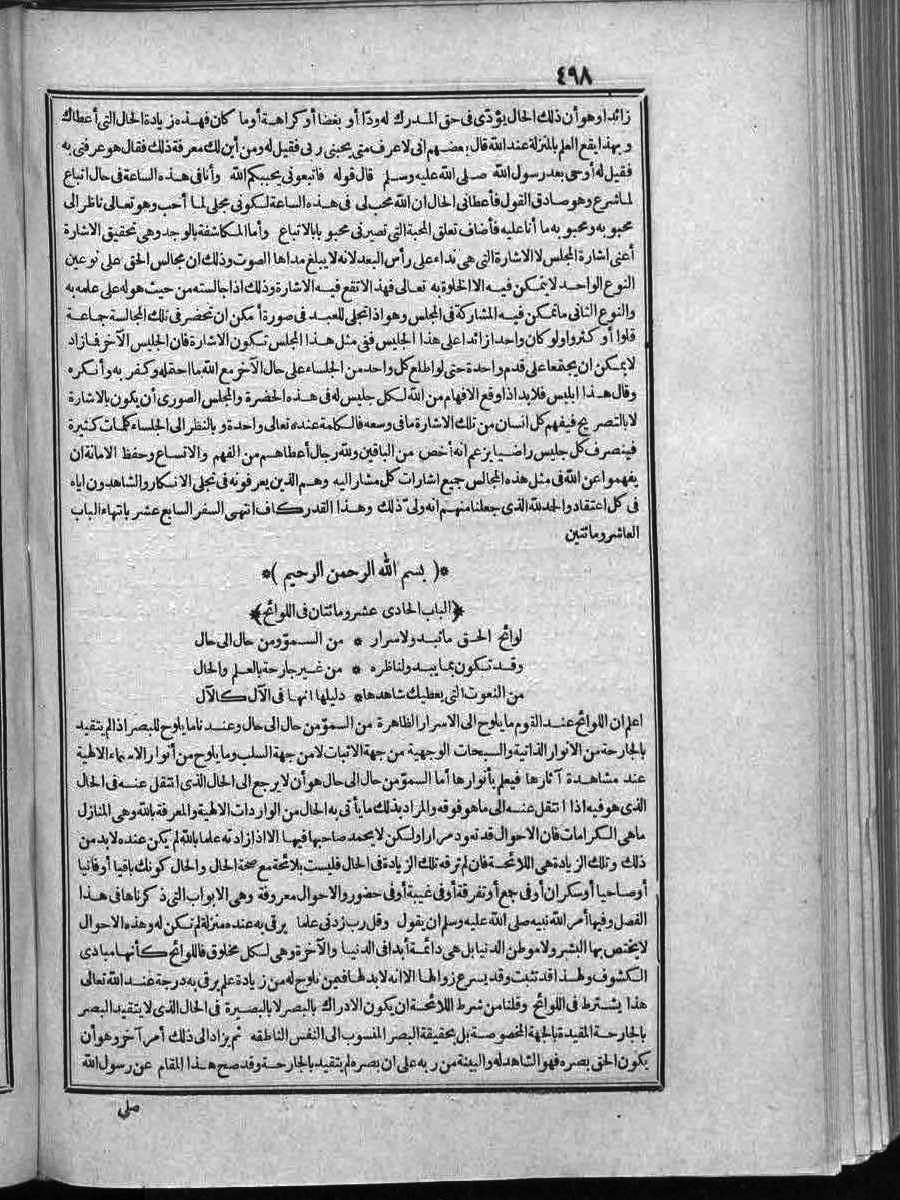 ٤٩٨
زائد اوهو أن ذلك الحال يؤدّى فى حق المدرك له ودّا أو بغضا أو كراهة أوما كان فهذه زيادة الحال التى أعطاك
وبهذا يقع العلم بالمنزلة عند الله قال بعضهم انى لاعرف متى يحبنى ربى فقيل له ومن أين لك معرفة ذلك فقال هو عرفنى به
فقيل له أوحى بعد رسول الله صلى الله عليه وسلم قال قوله فاتبعونى يحببكم الله وأنا فى هذه الساعة فى حال اتباع
لما شرع وهو صادق القول فأعطانى الحال ان الله محب لى فى هذه الساعة لكونى مجلى لما أحب وهو تعالى ناظر الى
محبوبه ومحبوبه ما أنا عليه فأضاف تعلق المحبة التى تصير فى محبوبا بالاتباع وأما المكاشفة بالوجد وهى تحقيق الاشارة
أعنى اشارة المجلس لا الاشارة التى هى نداء على رأس البعد لانه لا يبلغ مداها الصوت وذلك ان مجالس الحق على نوعين
النوع الواحد لا يتمكن فيه الا الخلوة به تعالى فهذا لا تقع فيه الاشارة وذلك اذا جالسته من حيث هو له على علمه به
والنوع الثانى ما تمكن فيه المشاركة فى المجلس وهو اذا تجلى للعبد فى صورة أمكن ان تحضر فى تلك المجالسة جماعة
قلوا أو كثروا ولو كان واحدا زائدا على هذا الجليس ففى مثل هذا المجلس تكون الاشارة فان الجليس الآخر فما زاد
لا يمكن ان يجتمعا على قدم واحدة حتى لو اطلع كل واحد من الجلساء على حال الآخر مع الله ما احتمله وكفر به وأنكره
وقال هذا ابليس فلا بد اذا وقع الافهام من الله لكل جليس له فى هذه الحضرة والمجلس الصورى أن يكون بالاشارة
لا بالتصريح فيفهم كل انسان من تلك الاشارة ما فى وسعه فالكلمة عنده تعالى واحدة وبالنظر الى الجلساء كلمات كثيرة
فينصرف كل جليس راضيا يزعم انه أخص من الباقين ولله رجال أعطاهم من الفهم والاتساع وحفظ الامانة ان
يفهموا عن الله فى مثل هذه المجالس جميع اشارات كل مشار اليه وهم الذين يعرفونه فى تجلى الانكار والشاهدون اياه
فى كل اعتقاد والحمد لله الذى جعلنا منهم انه ولىّ ذلك وهذا القدر كاف انتهى السفر السابع عشر بانتهاء الباب
العاشر ومائتين
*( بسم الله الرحمن الرحيم )*
﴿الباب الحادى عشر ومائتان فى اللوائح﴾
لوائح الحق ما تبدو لاسرار * من السموّ ومن حال الى حال
وقد تكون بما يبدو لناظره * من غير جارحة بالعلم والحال
من النعوت التى يعطيك شاهدها * دليلها انها فى الآل كالآل
اعلم ان اللوائح عند القوم ما يلوح الى الاسرار الظاهرة من السمو من حال الى حال وعندنا ما يلوح للبصر اذا لم يتقيد
بالجارحة من الانوار الذاتية والسبحات الوجهية من جهة الاثبات لا من جهة السلب وما يلوح من أنوار الاسماء الالهية
عند مشاهدة آثارها فيعلم بأنوارها أما السمو من حال الى حال هو أن لا يرجع الى الحال الذى انتقل عنه فى الحال
الذى هو فيه اذا انتقل عنه الى ما هو فوقه والمراد بذلك ما يأتى به الحال من الواردات الالهية والمعرفة بالله وهى المنازل
ما هى الكرامات فان الاحوال قد تعود مرارا ولكن لا يحمد صاحبها فيها الا اذا زادته علما بالله لم يكن عنده لابد من
ذلك وتلك الزيادة هى اللائحة فان لم ترقه تلك الزيادة فى الحال فليست بلائحة مع صحة الحال والحال كونك باقيا أو فانيا
أو صاحيا أو سكران أو فى جمع أو تفرقة أو فى غيبة أو فى حضور والاحوال معروفة وهى الابواب التى ذكرناها فى هذا
الفصل وفيها أمر الله نبيه صلى الله عليه وسلم ان يقول وقل رب زدنى علما يرقى به عنده منزلة لم تكن له وهذه الاحوال
لا يختص بها البشر ولا موطن الدنيا بل هى دائمة أبدا فى الدنيا والآخرة وهى لكل مخلوق فاللوائح كأنها مبادى
الكشوف ولهذا قد تثبت وقد يسرع زوالها الا انه لا بد لها فيمن تلوح له من زيادة علم يرقى به درجة عند الله تعالى
هذا يشترط فى اللوائح وقلنا من شرط اللائحة ان يكون الادراك بالبصر لا بالبصيرة فى الحال الذى لا يتقيد البصر
بالجارحة المقيدة بالجهة المخصوصة بل بحقيقة البصر المنسوب الى النفس الناطقه ثم يزاد الى ذلك أمر آخر وهو أن
يكون الحق بصره فهو الشاهد له والبينة من ربه على ان بصره لم يتقيد بالجارحة وقد صح هذا المقام عن رسول الله
صلى